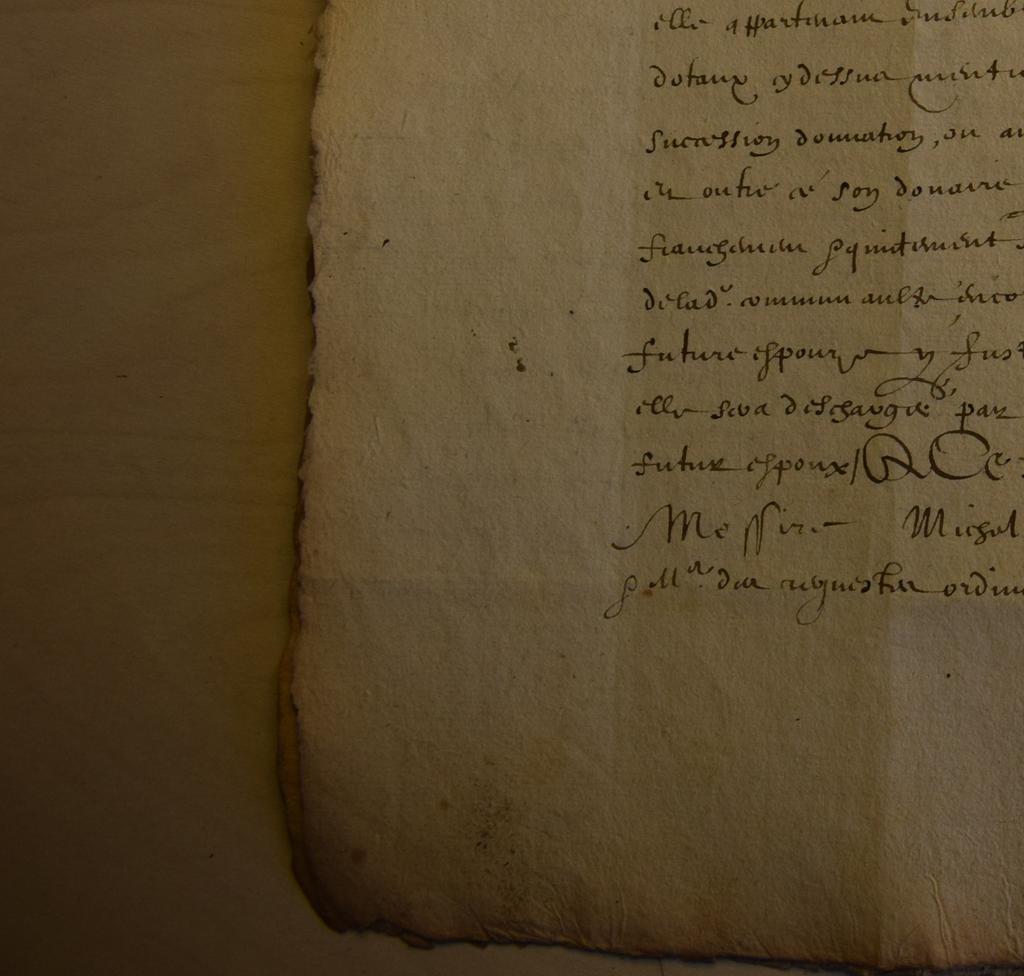 elle appartenans ensemb
dotaux cy dessus menti
succession donnation, ou au
et outre ce son douaire
franchement & quittement
de lad. communaulté enco
future espouze y fust
elle sera deschargée par
futur espoux /
Messire Michel
& Mr des requestes ordin